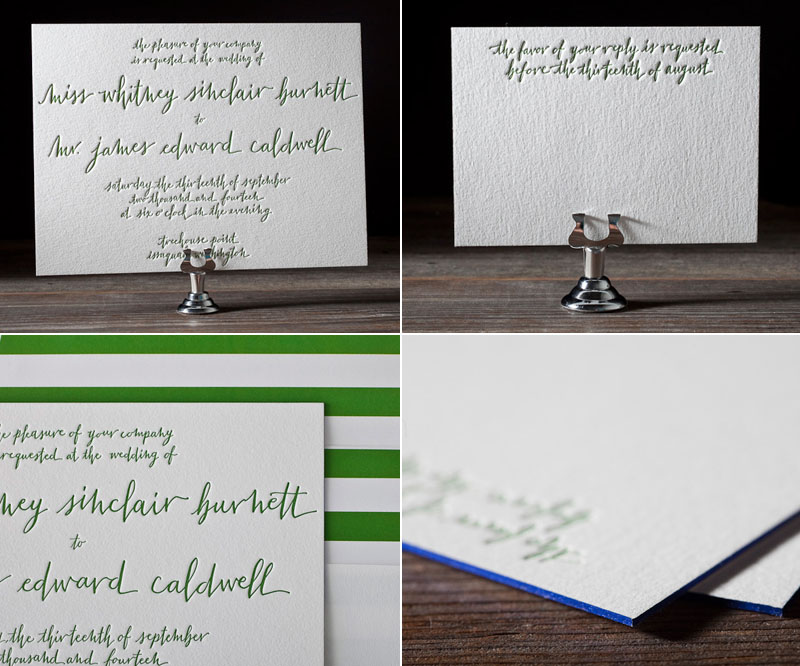 the pleasure of your company
is requested at the wedding of
miss whitney sinclair burnett
to
mr. james edward caldwell
saturday the thirteenth of september
two thousand and fourteen
at six o'clock in the evening
treehouse point
issaquah washington
the favor of your reply is requested
before the thirteenth of august
the pleasure of your company
requested at the wedding of
ney sinclair burnett
to
edward caldwell
the thirteenth of september
thousand and fourteen
the favor
before